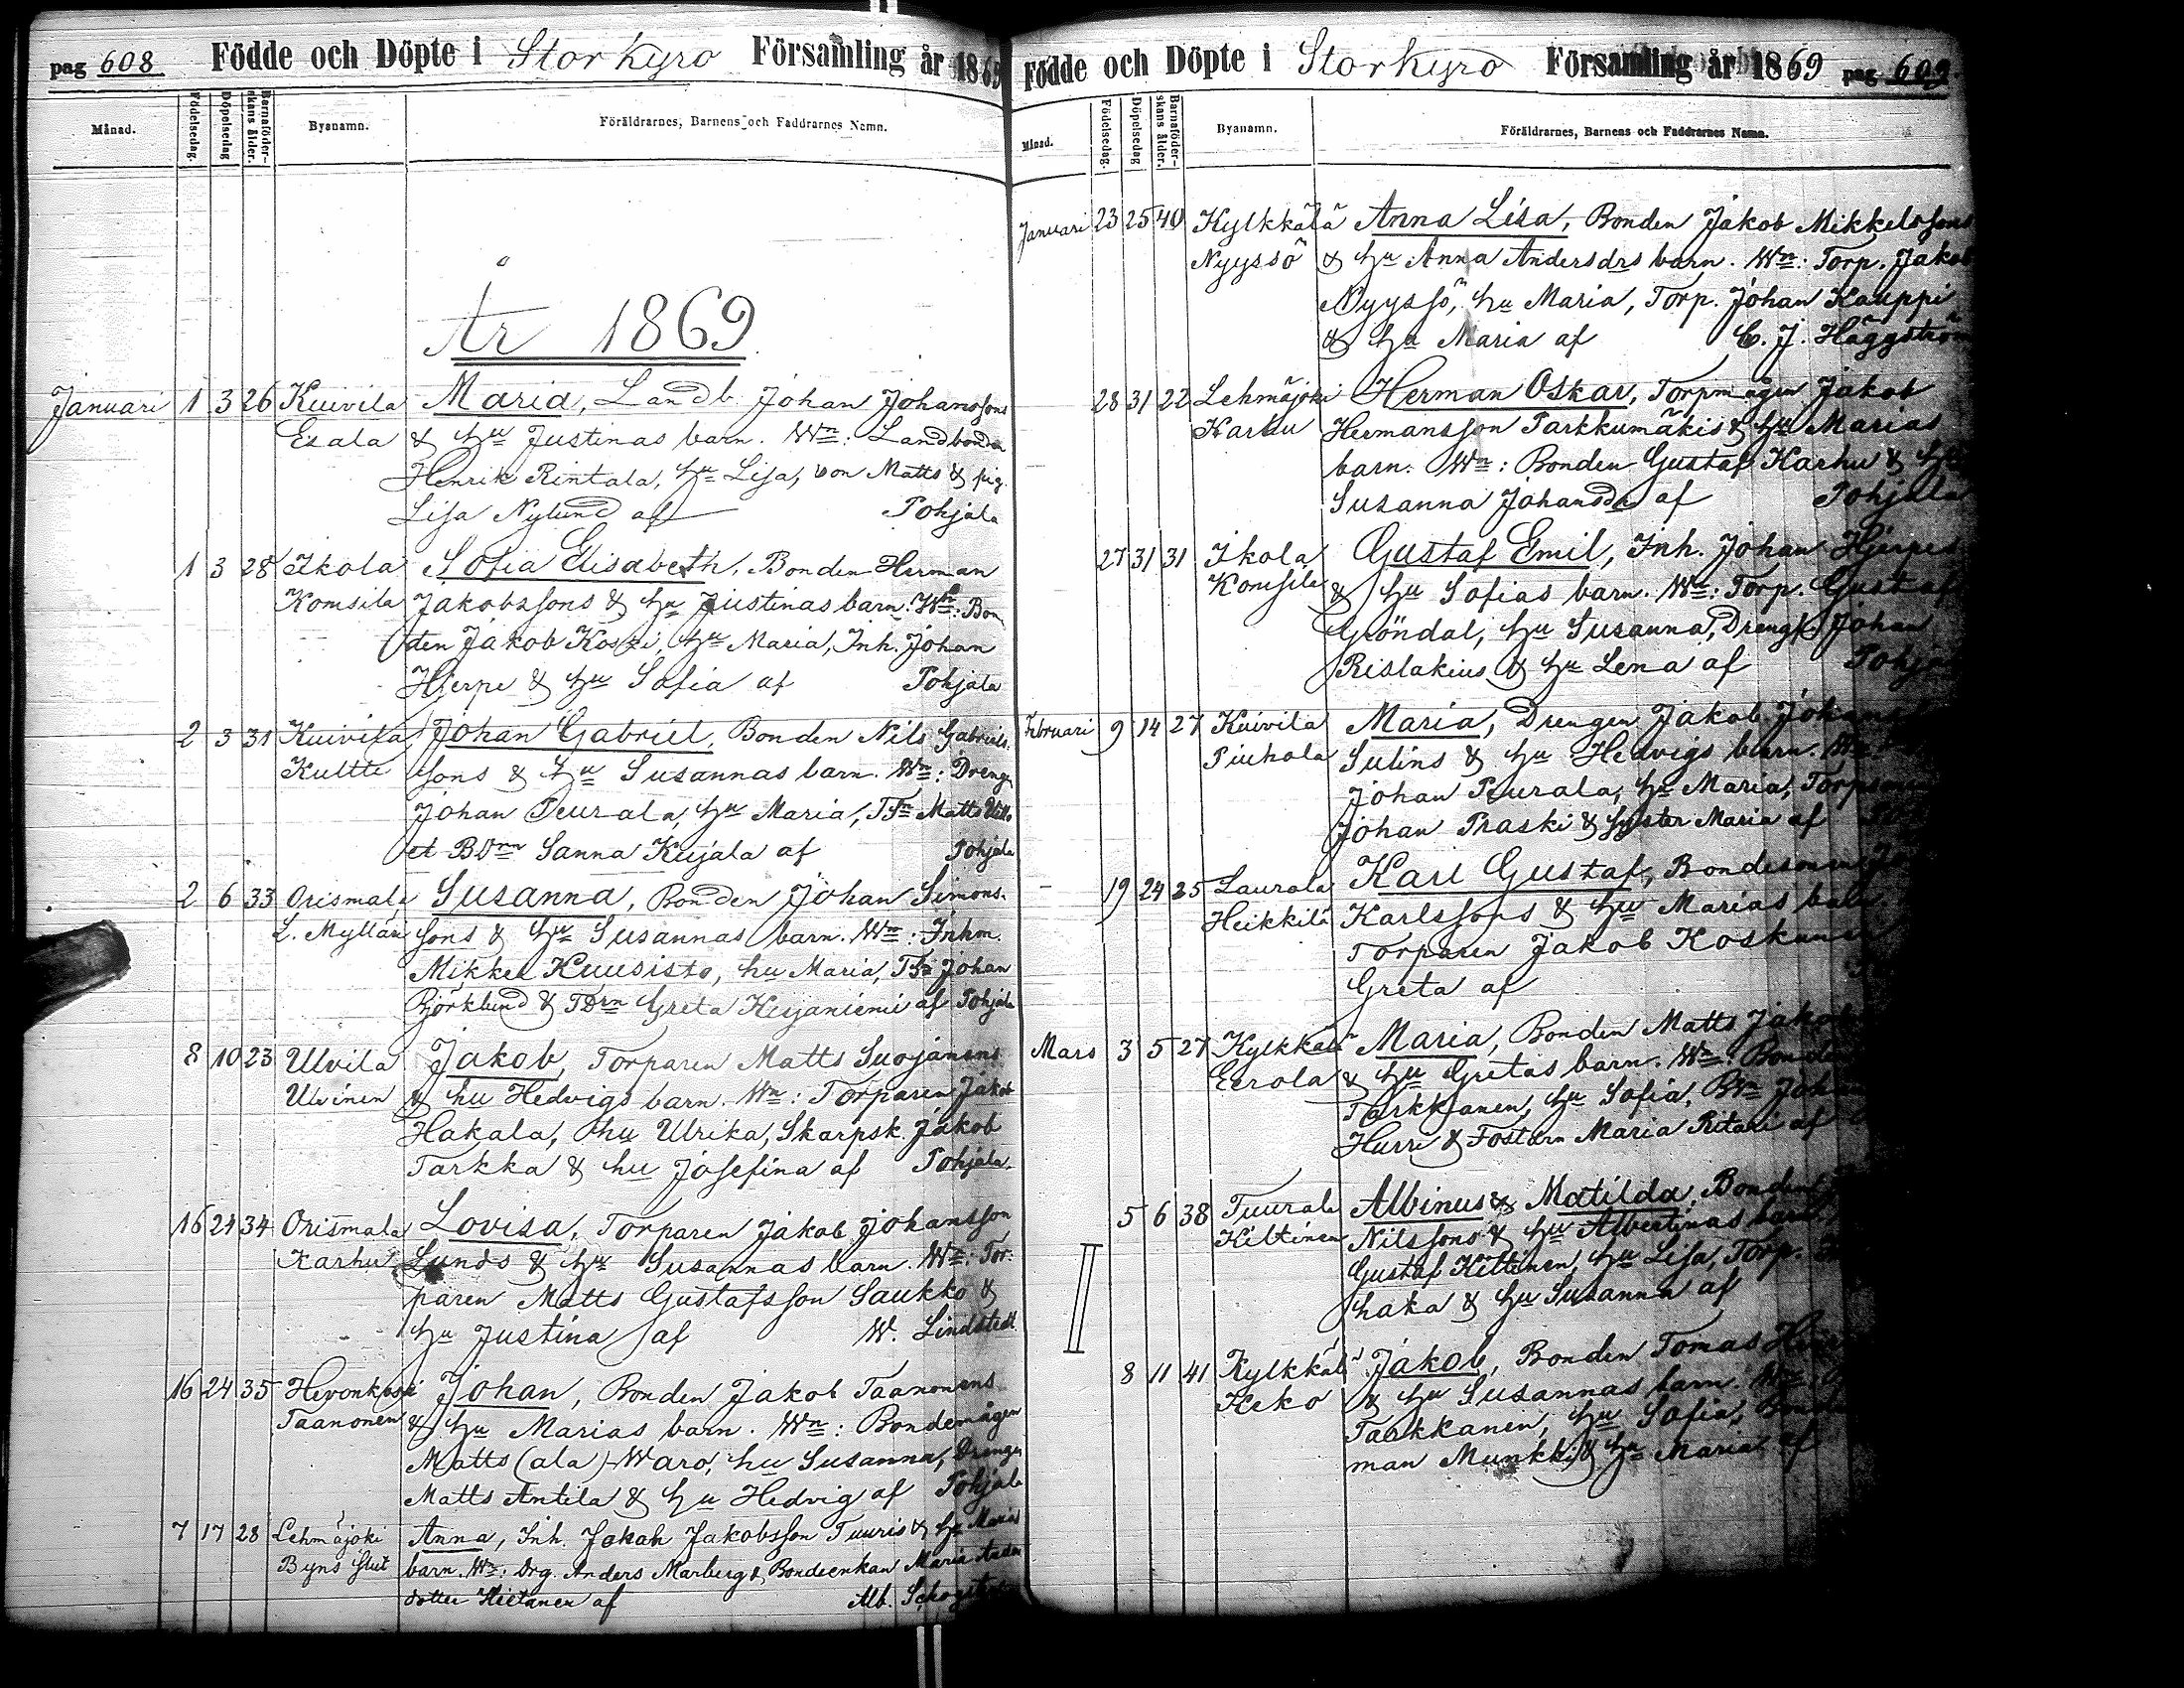 pag 608 Födde och Döpte i Storkyro Församling år 1869
Månad. Födelsedag. Döpelsedag Barnaföderskans ålder. Bysnamn. Föräldrarnes, Barnens och Faddrarnes Namn.
År 1869
Januari 1 3 26 Kuivila Maria, Landb. Johan Johanssons
Esala & hu Justinas barn. Wn: Landbonden
Henrik Rintala, hu Lisa, son Matts & pig.
Lisa Nylund af Pohjala
1 3 28 Ikola Sofia Elisabeth, Bonden Herman
Komsila Jakobssons & hu Justinas barn. Wn: Bon
den Jakob Koski, hu Maria, Inh. Johan
Hjerpe & hu Sofia af Pohjala
2 3 31 Kuivila Johan Gabriel, Bonden Nils Gabriels
Kultti sons & hu Susannas barn. Wn: Dreng
Johan Peurala, hu Maria, TSn Matts
et BDrn Sanna Kujala af Pohjala
2 6 33 Orismala Susanna, Bonden Johan Simons.
L. Myllari sons & hu Susannas barn. Wn: Inhm.
Mikkel Kuusisto, hu Maria, TSn Johan
Björklund & TDrn Greta Kesjaniemi af Pohjala
8 10 23 Ulvila Jakob, Torparen Matts Suojanens
Ulvinen & hu Hedvigs barn. Wn: Torparen Jakob
Hakala, hu Ulrika, Skarpsk. Jakob
Tarkka & hu Josefina af Pohjala.
16 24 34 Orismala Lovisa, Torparen Jakob Johansson
Karhu Lunds & hu Susannas barn. Wn: Tor.
paren Matts Gustafsson Saukko &
hu Justina af W. Lindstedt
16 24 35 Hevonkoski Johan, Bonden Jakob Taanonens
Taanonen & hu Marias barn. Wn: Bondemågen
Matts (ala) Waro, hu Susanna, Drengen
Matts Antila & hu Hedvig af Pohjala
7 17 28 Lehmäjoki Anna, Inh. Jakob Jakobsson Tuuris & hu Marias
Byns slut barn. Wn: Drg. Anders Marberg & Bondeenkan Maria
dotter Hietanen af Alb.
Födde och Döpte i Storkyro Församling år 1869 pag 609
Månad. Födelsedag. Döpelsedag Barnaföderskans ålder. Bysnamn. Föräldrarnes, Barnens och Faddrarnes Namn.
Januari 23 25 40 Kylkkälä Anna Lisa, Bonden Jakob Mikkelssons
Nyyssö & hu Anna Andersdrs barn. Wn: Torp. Jakob
Nyyssö, hu Maria, Torp. Johan Kauppi
& hu Maria af C. J. Häggström
28 31 22 Lehmäjoki Herman Oskar, Torpmågen Jakob
Karhu Hermansson Parkkumäkis & hu Marias
barn. Wn: Bonden Gustaf Karhu & hu
Susanna Johansdr af Pohjala
27 31 31 Ikola Gustaf Emil, Inh. Johan Hjerpes
Komsila & hu Sofias barn. Wn: Torp. Gustaf
Gröndal, hu Susanna, Dreng Johan
Rislakius & hu Lena af Pohjala
Februari 9 14 27 Kuivila Maria, Drengen Jakob
Piuhola Sulins & hu Hedvigs barn. Wn:
Johan Peurala, hu Maria,
Johan Praski & syster Maria af
- 19 24 25 Laurola Karl Gustaf, Bondesonen
Heikkilä Karlssons & hu Marias barn
Torparen Jakob
Greta af
Mars 3 5 27 Kylkkälä Maria, Bonden Matts
Eerola & hu Gretas barn. Wn: Bonden
Tarkkanen, hu Sofia,
Hurri & Maria Ritari af
5 6 38 Tuurala Albinus & Matilda, Bonden
Kiltinen Nilssons & hu Albertinas barn
Gustaf Kiltinen, hu Lisa, Torp.
haka & hu Susanna af
8 11 41 Kylkkälä Jakob, Bonden Tomas
Keko & hu Susannas barn. Wn:
Tarkkanen, hu Sofia,
man Munkki & hu Maria af